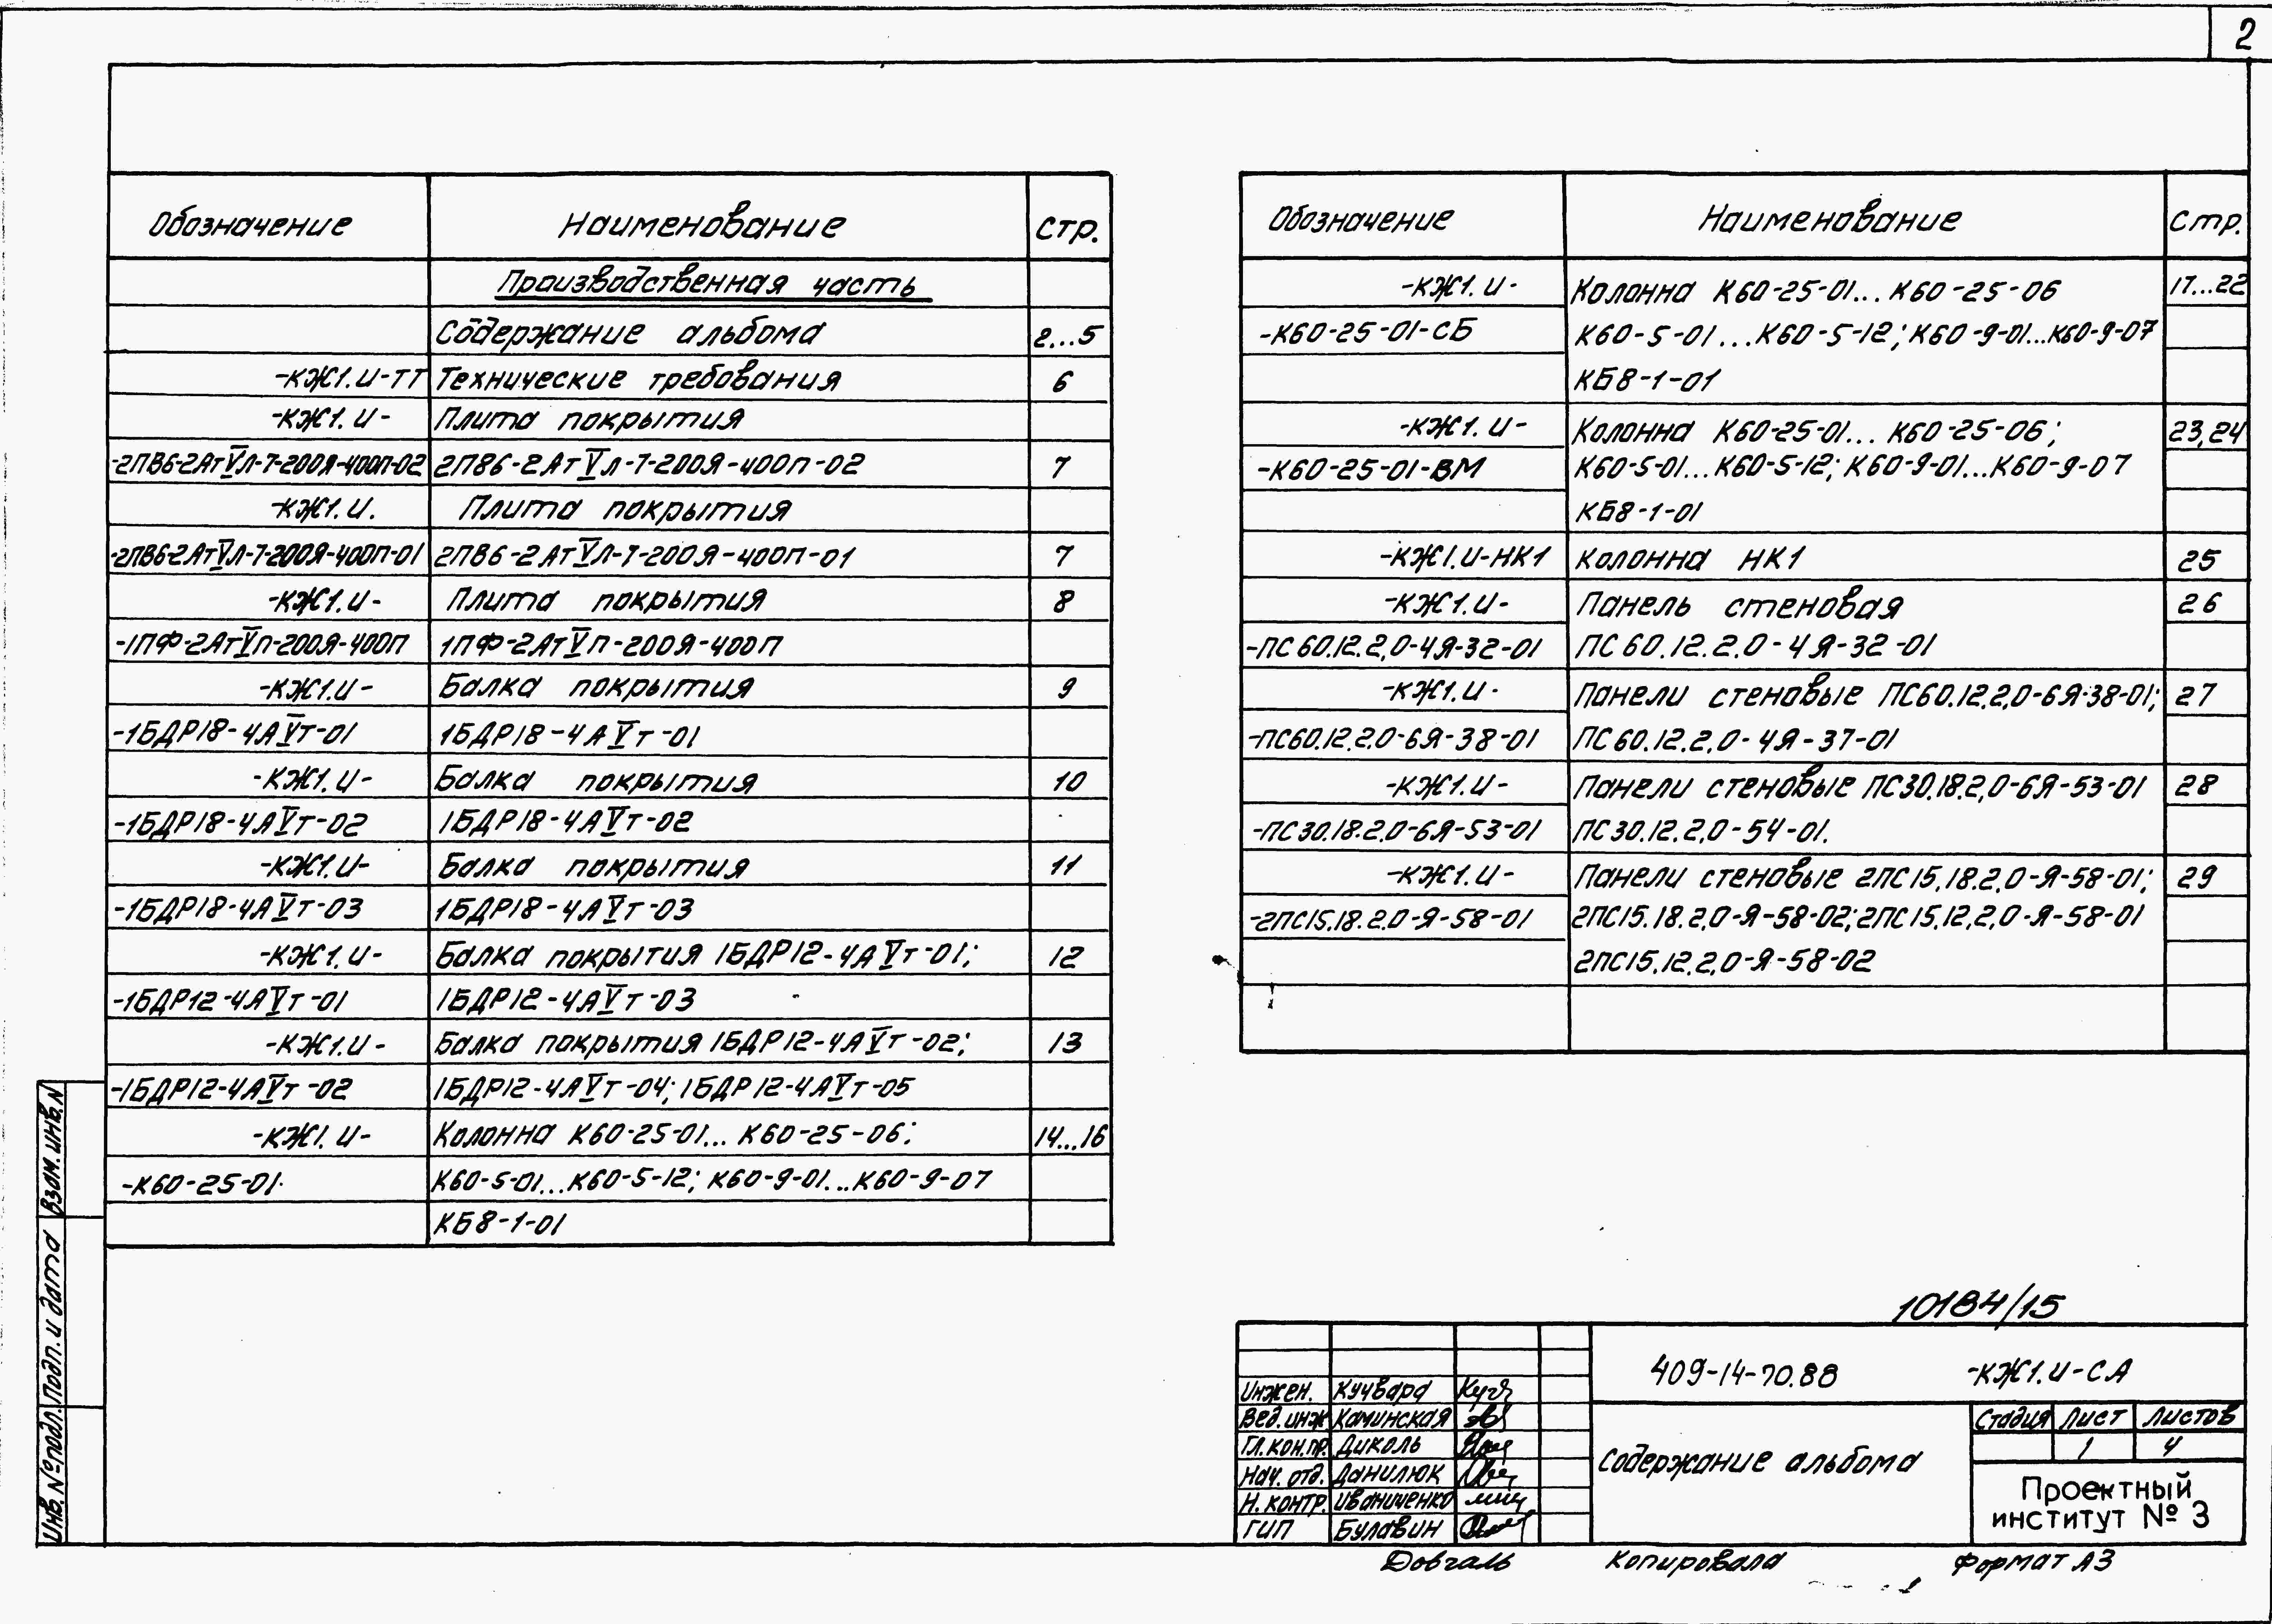 2
Обозначение Наименование Стр.
Производственная часть
Содержание альбома 2...5
-КЖ1.И-ТТ Технические требования 6
-КЖ1.И- Плита покрытия
-2ПВ6-2АтVЛ-7-200Я-400П-02 2ПВ6-2АтVЛ-7-200Я-400П-02 7
-КЖ1.И. Плита покрытия
-2ПВ6-2АтVЛ-7-200Я-400П-01 2ПВ6-2АтVЛ-7-200Я-400П-01 7
-КЖ1.И- Плита покрытия 8
-1ПФ-2АтVП-200Я-400П 1ПФ-2АтVП-200Я-400П
-КЖ1.И- Балка покрытия 9
-1БДР18-4АVт-01 1БДР18-4АVт-01
-КЖ1.И- Балка покрытия 10
-1БДР18-4АVт-02 1БДР18-4АVт-02
-КЖ1.И- Балка покрытия 11
-1БДР18-4АVт-03 1БДР18-4АVт-03
-КЖ1.И- Балка покрытия 1БДР12-4АVт-01; 12
-1БДР12-4АVт-01 1БДР12-4АVт-03
-КЖ1.И- Балка покрытия 1БДР12-4АVт-02; 13
-1БДР12-4АVт-02 1БДР12-4АVт-04; 1БДР12-4АVт-05
-КЖ1.И- Колонна К60-25-01... К60-25-06; 14...16
-К60-25-01 К60-5-01...К60-5-12; К60-9-01...К60-9-07
КБ8-1-01
Обозначение Наименование Стр.
-КЖ1.И- Колонна К60-25-01... К60-25-06 17...22
-К60-25-01-СБ К60-5-01...К60-5-12; К60-9-01...К60-9-07
КБ8-1-01
-КЖ1.И- Колонна К60-25-01... К60-25-06; 23,24
-К60-25-01-ВМ К60-5-01...К60-5-12; К60-9-01...К60-9-07
КБ8-1-01
-КЖ1.И-НК1 Колонна НК1 25
-КЖ1.И- Панель стеновая 26
-ПС60.12.2,0-4Я-32-01 ПС60.12.2.0-4Я-32-01
-КЖ1.И- Панели стеновые ПС60.12.2,0-6Я-38-01; 27
-ПС60.12.2.0-6Я-38-01 ПС60.12.2.0-4Я-37-01
-КЖ1.И- Панели стеновые ПС30.18.2,0-6Я-53-01 28
-ПС30.18.2.0-6Я-53-01 ПС30.12.2.0-54-01.
-КЖ1.И- Панели стеновые 2ПС15.18.2,0-Я-58-01; 29
-2ПС15.18.2.0-Я-58-01 2ПС15.18.2,0-Я-58-02; 2ПС15.12.2,0-Я-58-01
2ПС15.12.2,0-Я-58-02
Взам. инв. N
Подп. и дата
Инв. № подл.
10184/15
409-14-70.88 -КЖ1.И-СА
Инжен. Кучвара
Вед. инж Каминская
Гл. кон. пр. Диколь
Нач. отд. Данилюк
Н. контр. Иваниченко
ГИП Булавин
Содержание альбома
Стадия Лист Листов
1 4
Проектный
институт № 3
Довгаль Копировала Формат А3